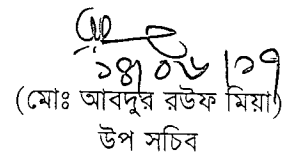 ১৪/০৬/১৭
(মোঃ আবদুর রউফ মিয়া)
উপ সচিব